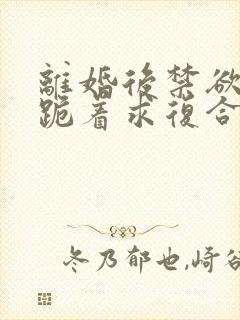 離婚後禁欲
跪着求復合
冬乃郁也,崎谷